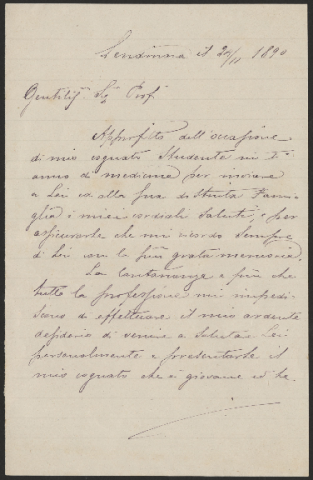 Lendinara il 20/11 1890
Gentilis. Sg Prof.
Approfitto dell'occasione
di mio cognato Studente in I°
anno di medicina per inviare
a Lei ex alla sua distinta Fami-
glia i miei cordiali saluti, e per
assicurarle che mi ricordo sempre
di Lei con la più grata memoria.
La lontananza e più che
tutto la professione mi impedi-
scono di effettuare il mio ardente
desiderio di venire a salutar Lei
personalmente e presentarle il
mio cognato che è giovane ed ha